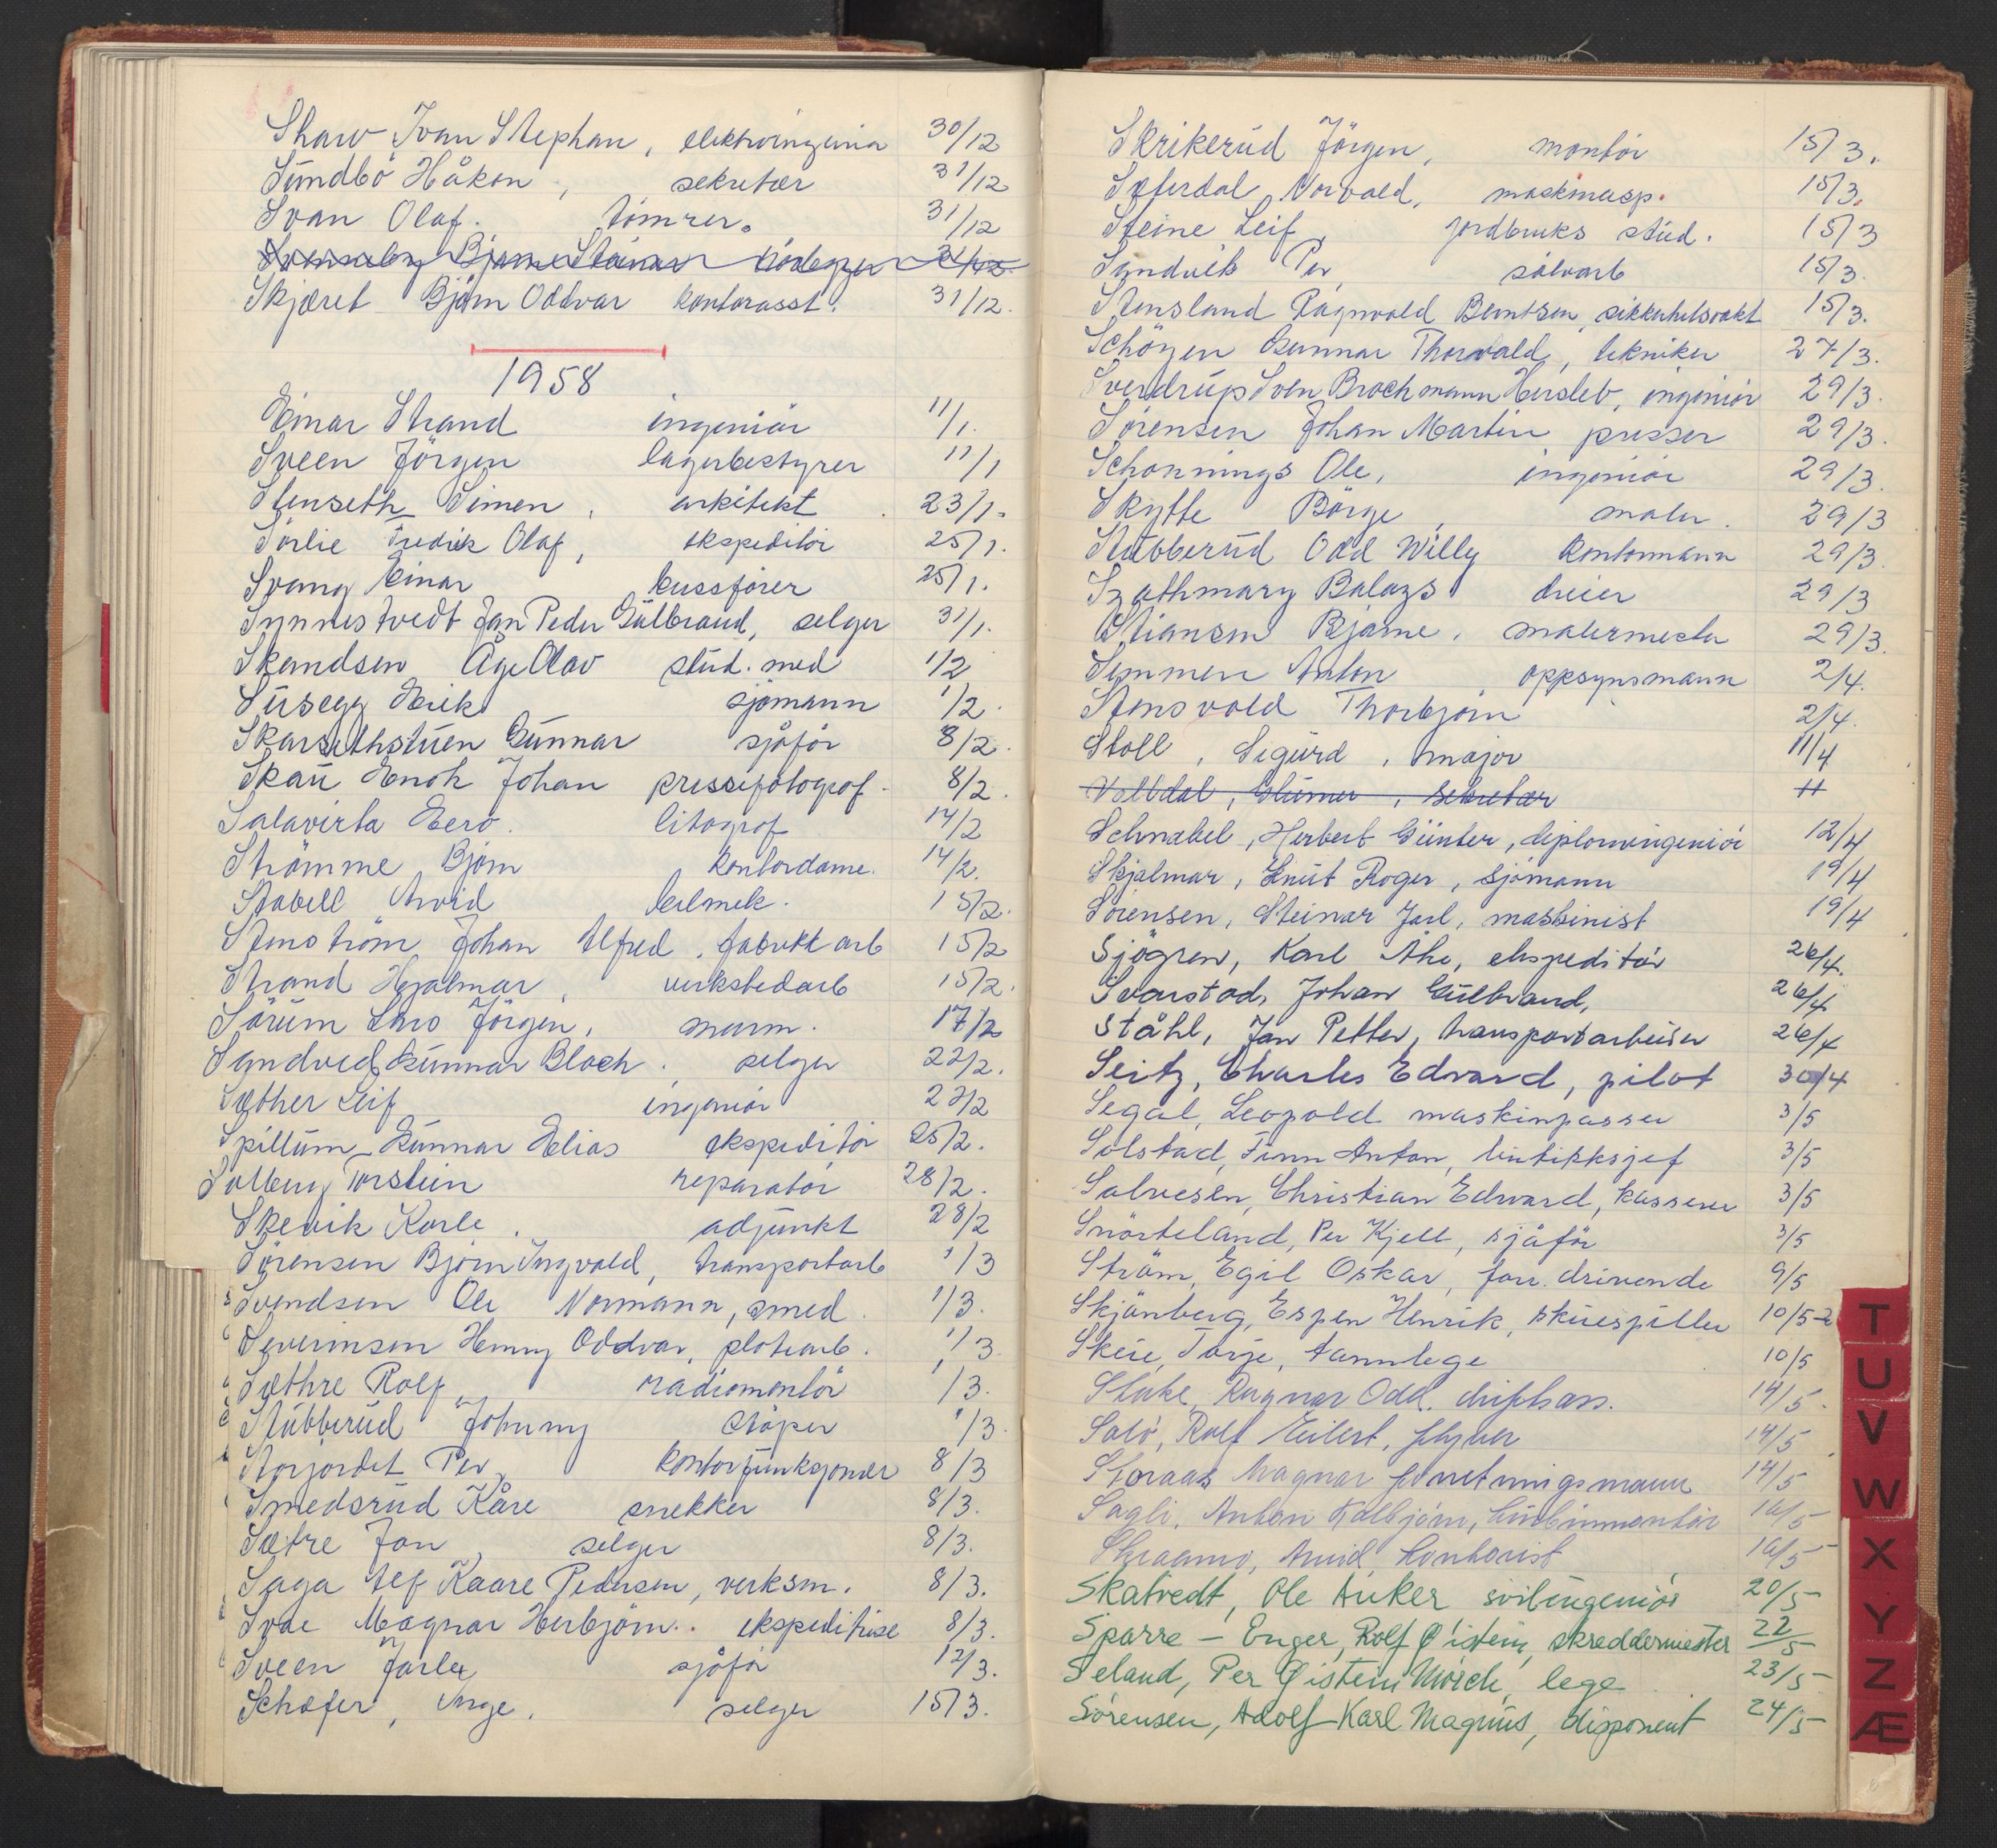 Shaw Ivan Stephan, elektroingeniør 30/12
Sundbö Håkon, sekretær 31/12
Svan Olaf. tømrer. 31/12
Bjarne 31/12
Skjæret Björn Oddvar kontorasst. 31/12.
1958
Einar Strand ingeniör 11/1.
Sveen Jörgen lagerbestyrer 11/1
Stenseth Simen, arkitekt. 23/1.
Sörlie Fredrik Olaf, ekspeditör 25/1.
Svang Einar bussförer 25/1.
Synnestvedt Jan Peder Gulbrand, selger 31/1.
Skandsen Åge Olav stud. med 1/2
Susegg Erik sjömann 1/2.
Skarsethstuen Gunnar sjåför 8/2.
Skau Enok Johan pressefotograf. 8/2.
Salavirta Eero. litograf 14/2
Strömme Björn kontordame. 14/2.
Stabell Arvid telmek. 15/2.
Stenström Johan Alfred, fabrikkarb 15/2
Strand Hjalmar, verkstedarb 15/2.
Sörum Lars Jörgen, murm. 17/2
Sandved Gunnar Bloch. selger 22/2.
Sæther Leif ingeniör 22/2
Spillum Gunnar Elias ekspeditör 25/2.
Solberg Torstein reparatör 28/2.
Skevik Karle. adjunkt 28/2
Sörensen Björn Ingvald, transportarb 1/3
Svendsen Ole Normann, smed. 1/3.
Severinsen Henny Oddvar, platearb. 1/3
Sæthre Rolf, radiomontör 1/3.
Stubberud Johnny stöper 1/3
Storjordet Per, kontorfunksjonær 8/3
Smedsrud Kåre snekker 8/3.
Sætre Jan, selger 8/3.
Saga Alf Kaare Pedersen, verksm. 8/3.
Svae Magnar Herbjörn.. ekspeditrise 8/3.
Sveen Jarle, sjåför 12/3.
Schæfer, Inge, selger 15/3.
Skrikerud Jörgen, montör 15/3.
Sæterdal Norvald, maskinasp. 15/3.
Steine Leif, jordbruks stud. 15/3
Sandvik Per sölvarb 15/3.
Stensland Ragnvald Berntsen, sikkerhetsvakt 15/3.
Schöyen Gunnar Thorvald, tekniker 27/3.
Sverdrup Sven Brochmann Hersleb, ingeniör 29/3.
Sörensen Johan Martin presser 29/3.
Schonnings Ole, ingeniör 29/3.
Skytte Börge, maler. 29/3
Stubberud Odd Willy kontormann 29/3.
Szathmary Balazs dreier 29/3
Stiansen Bjarne, malermester 29/3.
Simmen Anton, oppsynsmann 2/4.
Stensvold Thorbjörn 2/4.
Stoll, Sigurd, major 11/4
sekretær 11
Schnabel, Herbert Günter, diplomingeniör 12/4
Skjalmar, Knut Roger, sjömann 19/4
Sörensen, Steinar Jarl, maskinist 19/4
Sjögren, Karl Åke, ekspeditör 26/4.
Svarstad, Johan Gulbrand, 26/4
Ståhl, Jan Petter, transportarbeider 26/4
Seitz, Charles Edvard, pilot 30/4
Segal, Leopold maskinpasser 3/5
Solstad, Finn Anton, butikksjef 3/5
Salvesen, Christian Edward, kasserer 3/5
Snörteland, Per Kjell, sjåför 3/5
Ström, Egil Oskar, forr. drivende 9/5
Skjönberg, Espen Henrik, skuespiller 10/5-2
Skeie, Tarje, tannlege 10/5
Stake, Ragnar Odd. driftsass. 14/5.
Salö, Rolf Eilert, flyver 14/5
Storaas Magnar forretningsmann 14/5
Sagli, Anton Kolbjörn, turbinmontör 16/5
Arvid, kontorist 16/5
Skatvedt, Ole Anker sivilingeniör 20/5
Sparre - Enger, Rolf Øistein, skreddermester 22/5
Seland, Per Øistein Mörch, lege 23/5
Sörensen, Adolf Karl Magnus, disponent 24/5
T
U
V
W
X
Y
Z
Æ